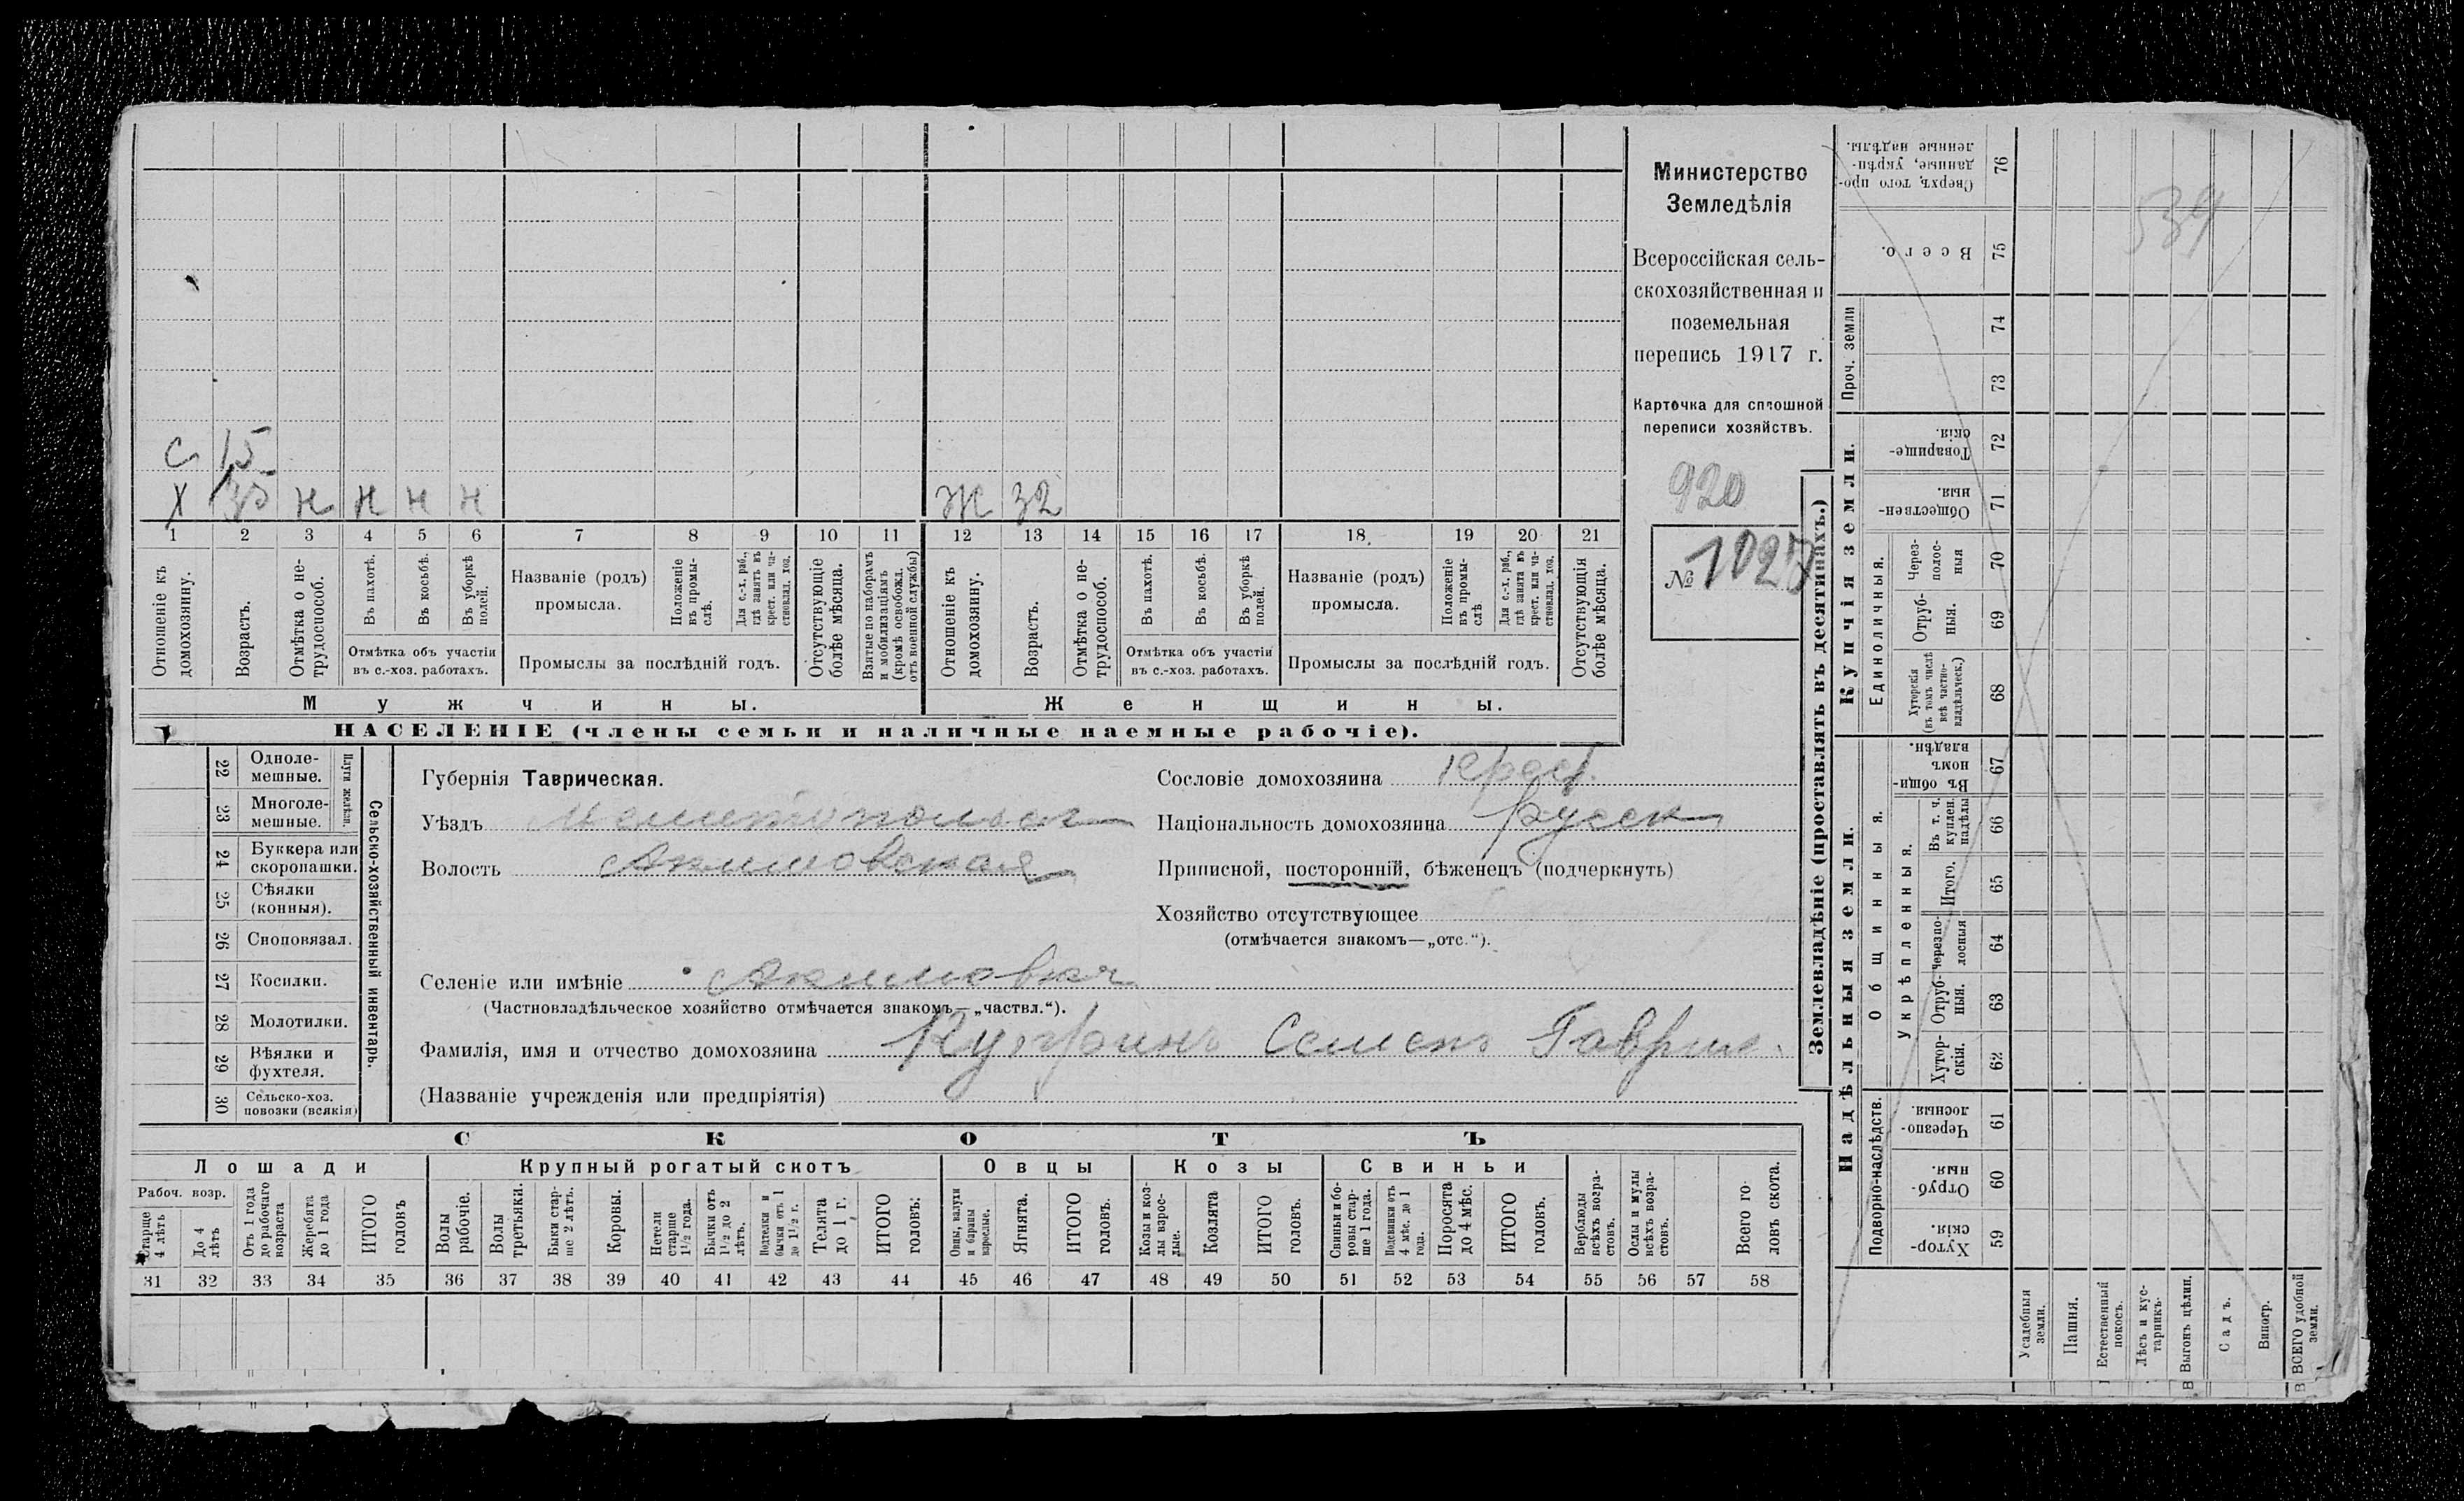 Министерство
Земледѣлія
Всероссійская сель-
скохозяйственная и
поземельная
перепись 1917 г.
Карточка для сплошной
переписи хозяйствъ.
920
№ 1027
539
С 15
Х 35 н н н н
Ж 32
1 2 3 4 5 6 7 8 9 10 11 12 13 14 15 16 17 18 19 20 21
Отношеніе къ домохозяину.
Возрастъ.
Отмѣтка о не-
трудоспособ.
Въ пахотѣ.
Въ косьбѣ.
Въ уборкѣ полей.
Отмѣтка объ участіи
въ с.-хоз. работахъ.
Названіе (родъ)
промысла.
Положеніе
въ промы-
слѣ.
Для с.-х. раб.,
гдѣ занятъ въ
крест. или ча-
стновлад. хоз.
Промыслы за послѣдній годъ.
Отсутствующіе
болѣе мѣсяца.
Взятые по наборамъ
и мобилизаціямъ
(кромѣ освобожд.
отъ военной службы)
Отношеніе къ
домохозяину.
Возрастъ.
Отмѣтка о не-
трудоспособ.
Въ пахотѣ.
Въ косьбѣ.
Въ уборкѣ
полей.
Отмѣтка объ участіи
въ с.-хоз. работахъ.
Названіе (родъ)
промысла.
Положеніе
въ промы-
слѣ
Для с.-х. раб.,
гдѣ занята въ
крест. или ча-
стновлад. хоз.
Промыслы за послѣдній годъ.
Отсутствующія
болѣе мѣсяца.
Мужчины.
Женщины.
НАСЕЛЕНІЕ (члены семьи и наличные наемные рабочіе).
22 Одноле-
мешные.
23 Многоле-
мешные.
Плуги желѣзн.
24 Буккера или
скоропашки.
25 Сѣялки
(конныя).
26 Сноповязал.
27 Косилки.
28 Молотилки.
29 Вѣялки и
фухтеля.
30 Сельско-хоз.
повозки (всякія)
Сельско-хозяйственный инвентарь.
Губернія Таврическая.
Уѣздъ Мелитопольск
Волость Акимовская
Селеніе или имѣніе Акимовка
(Частновладѣльческое хозяйство отмѣчается знакомъ—„частвл.“).
Фамилія, имя и отчество домохозяина Семенъ Гаврил.
(Названіе учрежденія или предпріятія)
Сословіе домохозяина крест.
Національность домохозяина русск
Приписной, посторонній, бѣженецъ (подчеркнуть)
Хозяйство отсутствующее
(отмѣчается знакомъ—„отс.“).
СКОТЪ
Лошади
Крупный рогатый скотъ
Овцы
Козы
Свиньи
Рабоч. возр.
Старше
4 лѣтъ
До 4
лѣтъ
Отъ 1 года
до рабочаго
возраста
Жеребята
до 1 года
ИТОГО
головъ
Волы
рабочіе.
Волы
третьяки.
Быки стар-
ше 2 лѣтъ.
Коровы.
Нетели
старше
1½ года.
Бычки отъ
1½ до 2
лѣтъ.
Подтелки и
бычки отъ 1
до 1½ г.
Телята
до 1 г.
ИТОГО
головъ:
Овцы, валухи
и бараны
взрослые.
Ягнята.
ИТОГО
головъ.
Козы и коз-
лы взрос-
лые.
Козлята
ИТОГО
головъ.
Свиньи и бо-
ровы стар-
ше 1 года.
Подсвинки отъ
4 мѣс. до 1
года.
Поросята
до 4 мѣс.
ИТОГО
головъ.
Верблюды
всѣхъ возра-
стовъ.
Ослы и мулы
всѣхъ возра-
стовъ.
Всего го-
ловъ скота.
31 32 33 34 35 36 37 38 39 40 41 42 43 44 45 46 47 48 49 50 51 52 53 54 55 56 57 58
Землевладѣніе (проставлять въ десятинахъ.)
Надѣльныя земли.
Купчія земли.
Проч. земли
Подворно-наслѣдств.
Общинныя.
Укрѣпленныя.
Единоличныя.
Сверхъ того про-
данные, укрѣп-
ленные надѣлы. 76
Всего. 75
74
73
Товарище-
скія. 72
Обществен-
ныя. 71
Через-
полос-
ныя 70
Отруб-
ныя. 69
Хуторскія
(въ томъ числѣ
всѣ частно-
владѣльческ.) 68
Въ общин-
номъ
владѣн. 67
Въ т. ч.
куплен.
надѣлы 66
Итого. 65
Черезпо-
лосныя 64
Отруб-
ныя. 63
Хутор-
скія. 62
Черезпо-
лосныя. 61
Отруб-
ныя. 60
Хутор-
скія. 59
Усадебныя
земли.
Пашня.
Естественный
покосъ.
Лѣсъ и кус-
тарникъ.
Выгонъ цѣлин.
Садъ.
Виногр.
ВСЕГО удобной
земли.